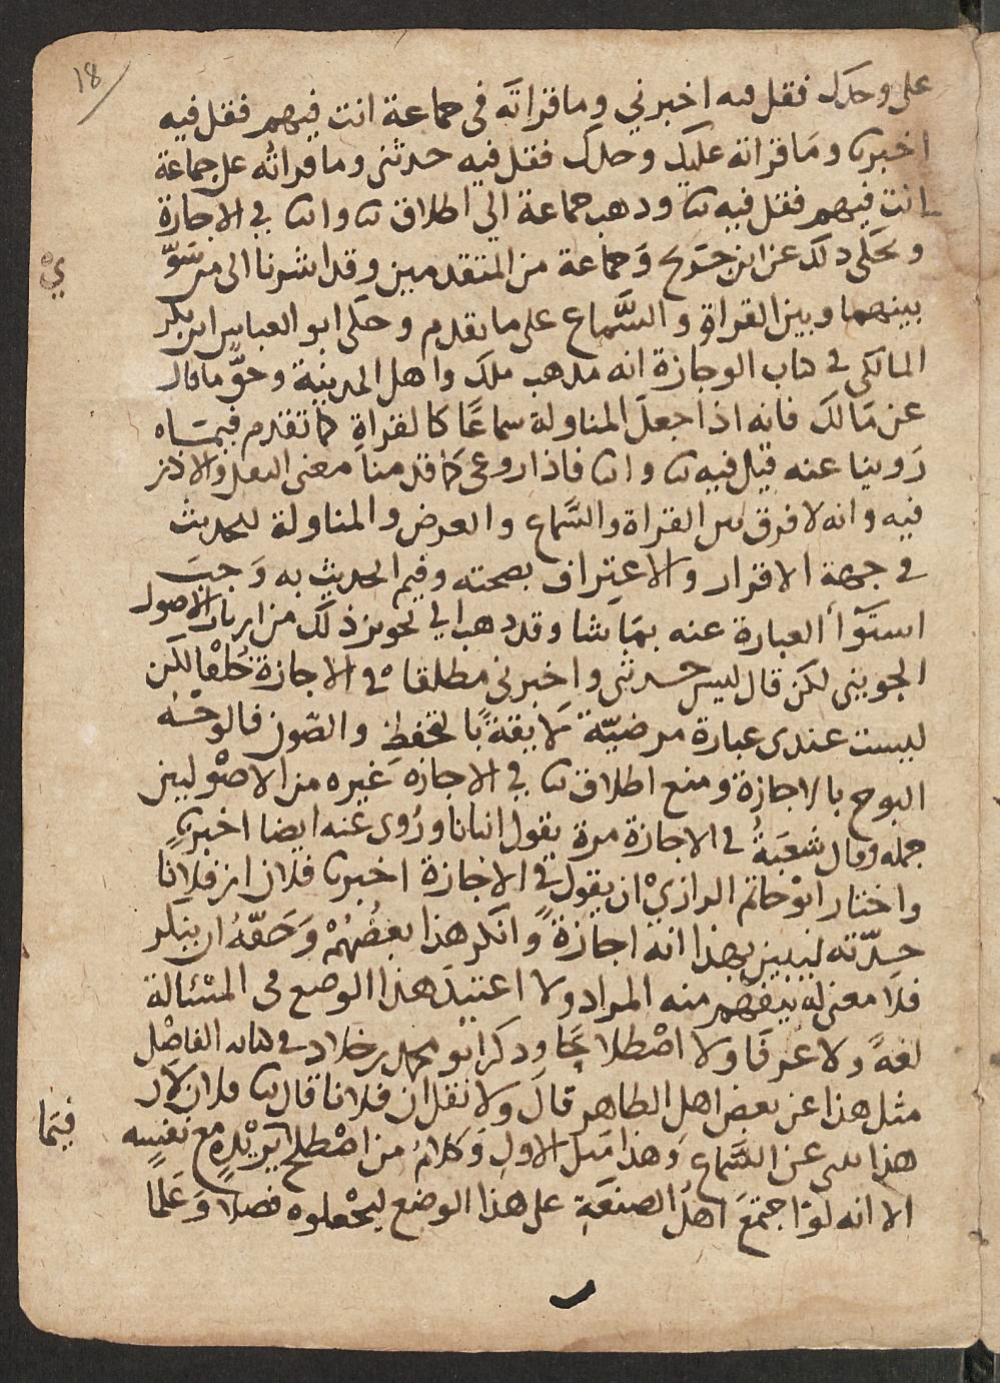 ١٨
على وحدك فقل فيه اخبرني وما قراته في جماعة انت فيهم فقل فيه
اخبرنا وما قراته عليك وحدك فقل فيه حدثني وما قراته على جماعة
انت فيهم فقل فيه نا وذهب جماعة الى اطلاق نا وانا في الاجازة
وحكى ذلك عن ابن جريج وجماعة من المتقدمين وقد اشرنا الى من سوّ
ي
بينهما وبين القراة والسَّماع على ما تقدم وحكى ابو العباس ابن بكر
المالكى في كتاب الوجازة انه مذهب ملك واهل المدينة وحقّ ما قال
عن مَالك فانه اذا جعل المناولة سماعًا كالقراةِ كما تقدم فيمَاه
رَوينا عنه قيل فيه نا وانا فاذا روعى كما قدمنا معنى النقل والاذن
فيه وانه لا فرق بين القراة والسَّماع والعرض والمناولة للحديث
في جهة الاقرار والاعتراف بصحته وفهم الحديث به وَجبَ
استوَآ العبارة عنه بما شا وقد ذهب الى تجويز ذلك من ارباب الاصول
الجوينى لكن قال ليس حدثنى واخبرنى مطلقا في الاجازة خُلفا لكن
ليست عندى عبارة مرضيّة لايقةً بالتحفظِ والصّون فالوجْه
البوح بالاجازة ومنع اطلاق نا في الاجازه غيره من الاصْوليين
جمله وقال شعبَةُ في الاجازة مرة يقول انبانا ورُوى عنه ايضا اخبرنا
واختار ابوْ حاتم الرازيْ ان يقول في الاجازة اخبرنا فلان ان فلانًا
حدّثه ليبين بهذا انه اجازةً وانكر هذا بعضُهُمْ وَحَقّهُ ان ينكر
فلا معنى له يتفهم منه المراد ولا اعتيدَ هذا الوضع في المسْئالة
لغةً ولا عرفًا ولا اصْطلاحًا وذكر ابو محمد بن خلاد في كتابه الفاصْل
مثل هذا عن بعض اهل الظاهر قالَ ولا تقل ان فلانا قال نا فلان لان
هذا ينبى عن السَّماع وَهذا مثل الاول وَكلامُ من اصْطلح يريْده مع نفسِه
فيما
الا انه لوْ اجتمعَ اهلُ الصنعَةِ على هذا الوضع ليجْعلوه فصلًا وَعَلمًا